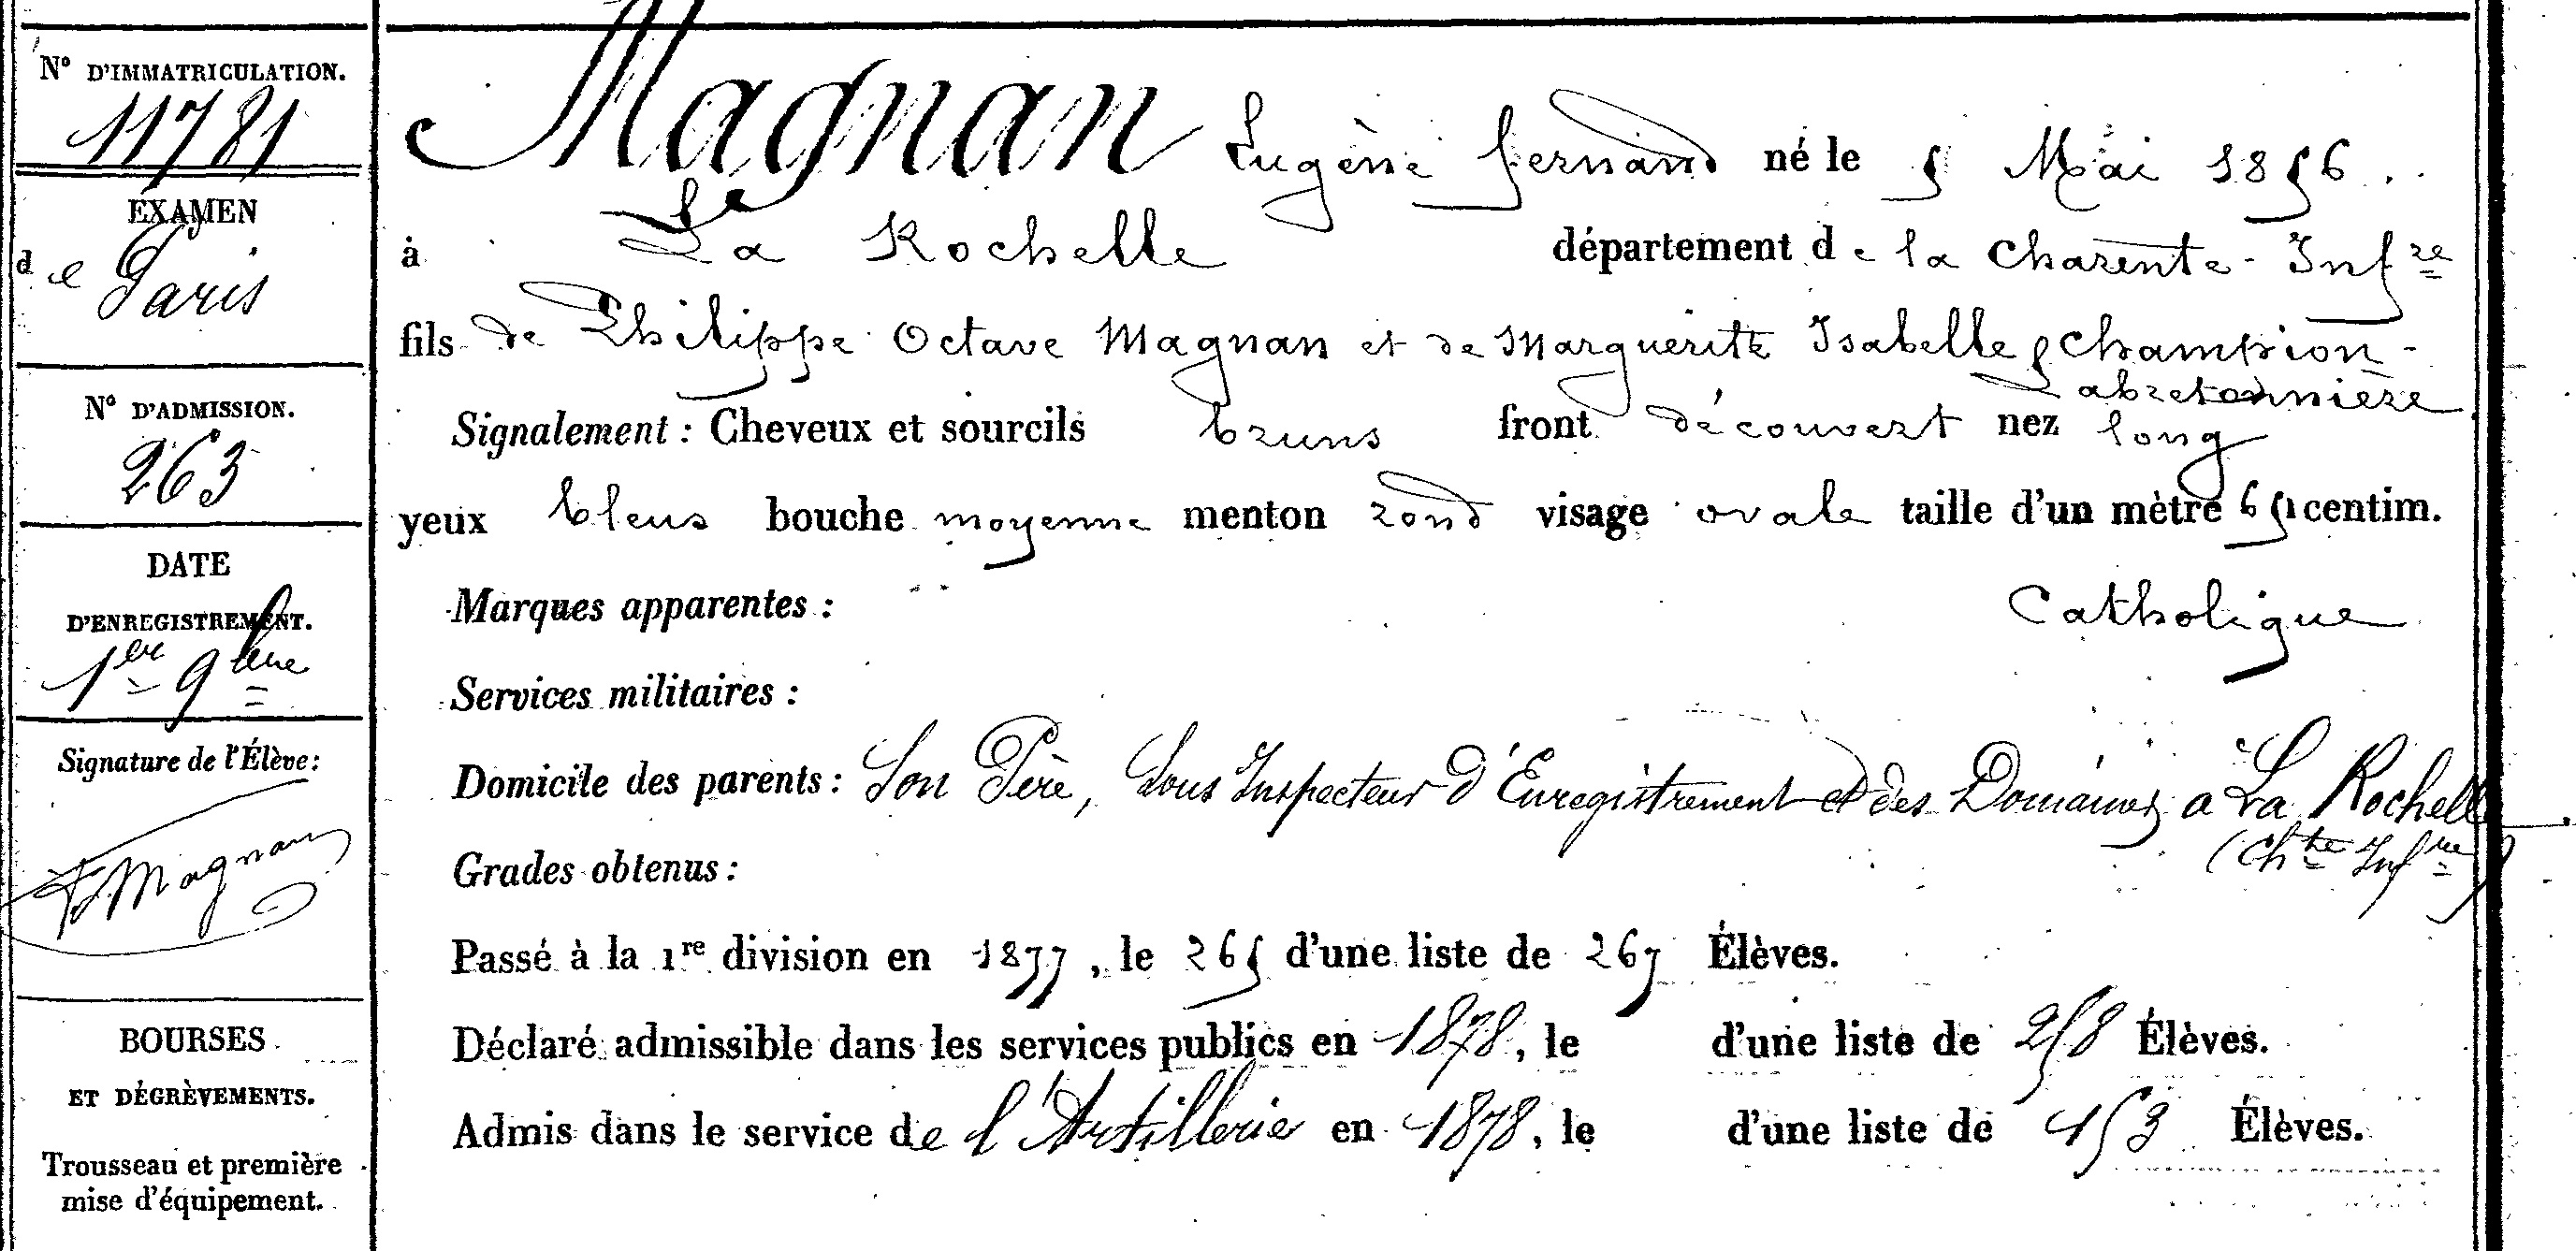 N° D'IMMATRICULATION.
11781
EXAMEN
de Paris
N° D'ADMISSION.
263
DATE
D'ENREGISTREMENT.
1er 9bre
Signature de l'Élève:
F Magnan
BOURSES
ET DÉGRÈVEMENTS.
Trousseau et première
mise d'équipement.
Magnan Eugène Fernand né le 5 Mai 1856.
à La Rochelle département de la Charente-Infre
fils de Philippe Octave Magnan et de Marguerite Isabelle Champion-
Labretonnière
Signalement : Cheveux et sourcils bruns front découvert nez long
yeux bleus bouche moyenne menton rond visage ovale taille d'un mètre 65 centim.
Marques apparentes : Catholique
Services militaires :
Domicile des parents : Son Père, Sous Inspecteur d'Enregistrement et des Domaines a La Rochelle
(Chte Infre)
Grades obtenus :
Passé à la 1re division en 1877, le 265 d'une liste de 267 Élèves.
Déclaré admissible dans les services publics en 1878, le d'une liste de 258 Élèves.
Admis dans le service de l'Artillerie en 1878, le d'une liste de 153 Élèves.